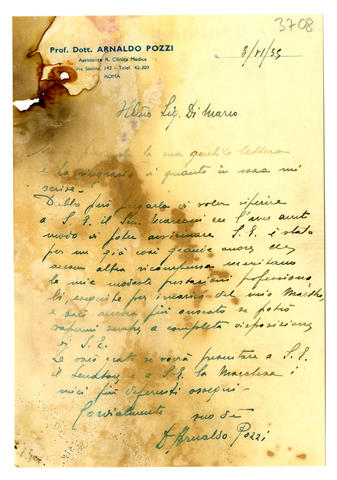 3708
Prof. Dott. ARNALDO POZZI
Assistente R. Clinica Medica
Via Sistina, 143 - Telef. 42-309
ROMA
3/VI/35
Ill/mo Sig. Di Marco
la sua gentile lettera
e La ringrazio di quanto in essa mi
scrive.
Debbo però pregarla di voler riferire
a S. E. il Sen. Marconi che l'aver avuto
modo di poter avvicinare S. E. è stato
per me già così grande onore che
nessun altra ricompensa meritano
le mie modeste prestazioni professiona
li, eseguite per incarico del mio Maestro,
e sarò ancora più onorato se potrò
sapermi sempre a completa disposizione
di S. E.
Le sarò grato se vorrà presentare a S. E.
il Senatore e a S. E. la Marchesa i
miei più deferenti ossequi.
Cordialmente suo dev
Dr Arnaldo Pozzi